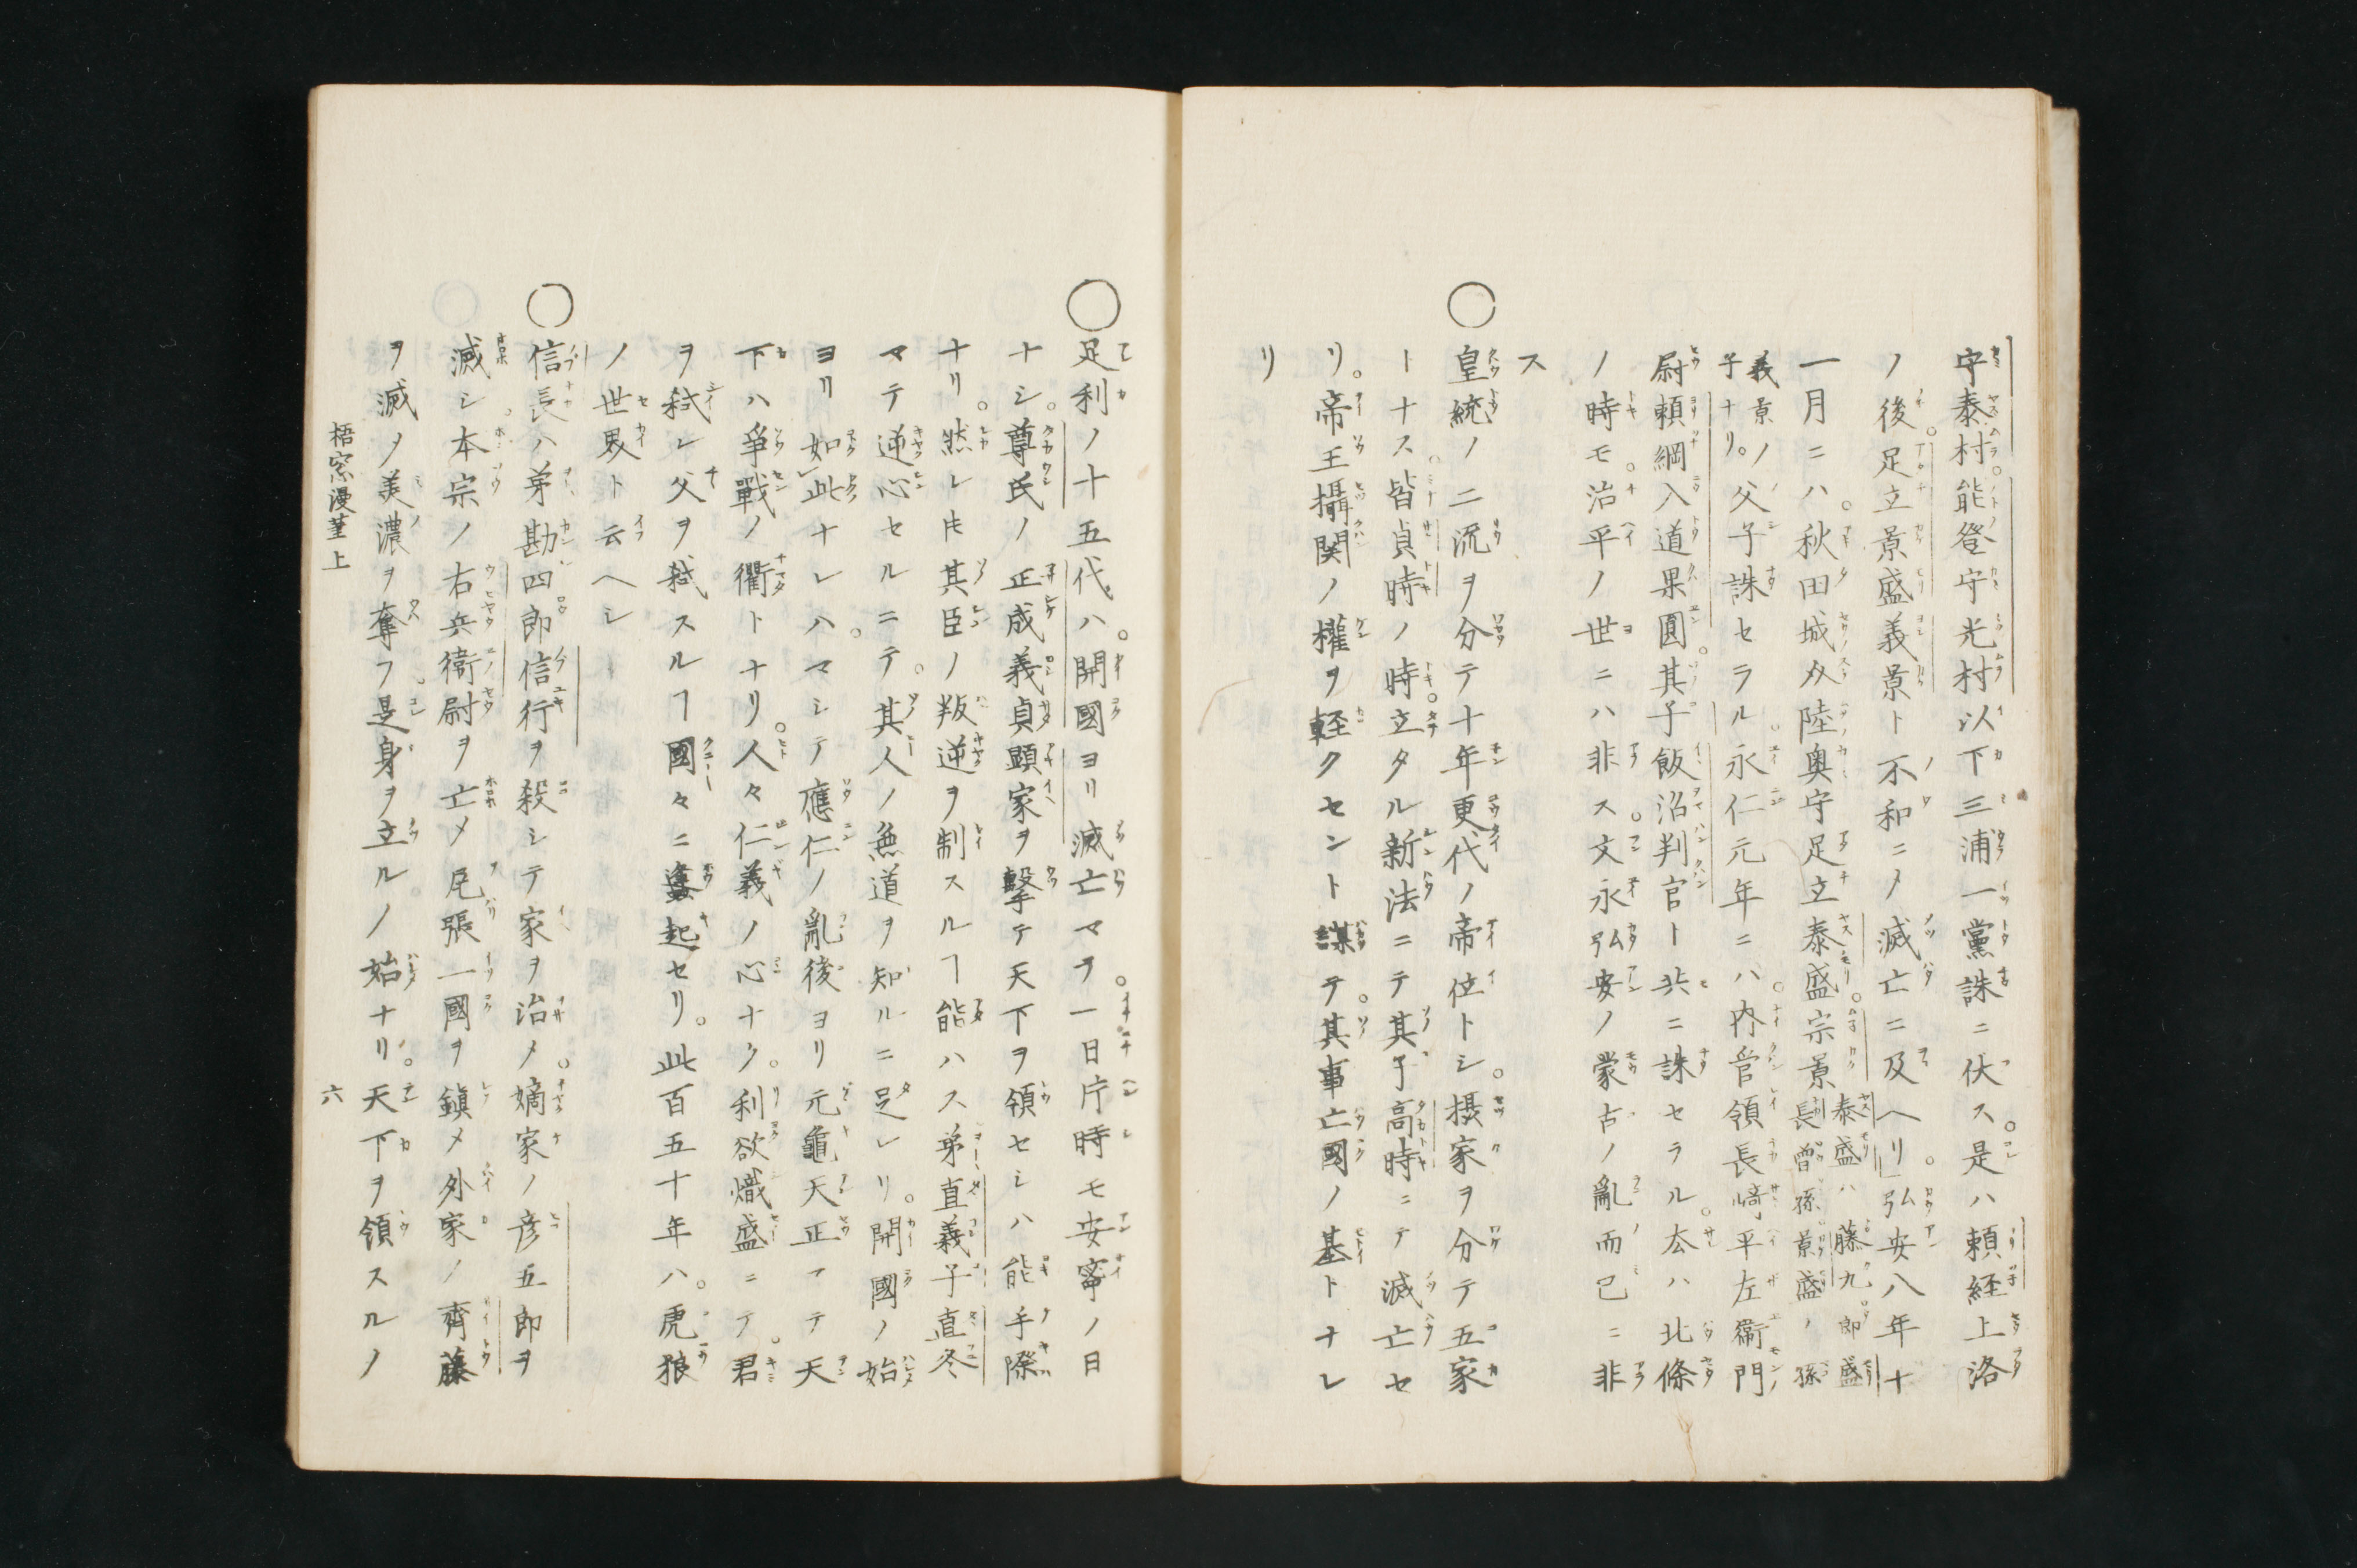 守泰村能登守光村以下三浦一黨誅ニ伏ス是ハ頼経上洛
ノ後足立景盛義景ト不和ニメ滅亡ニ及ヘリ弘安八年十
一月ニハ秋田城介陸奥守足立泰盛宗景長曽孫景盛ノ孫泰盛ハ藤九郎盛
義景ノ子ナリ父子誅セラル永仁元年ニハ内管領長崎平左衛門
尉頼綱入道果圓其子飯沼判官ト共ニ誅セラル厺ハ北條
ノ時モ治平ノ世ニハ非ス文永弘安ノ蒙古ノ亂而已ニ非
ス
○皇統ノ二流ヲ分テ十年更代ノ帝位トシ摂家ヲ分テ五家
トナス皆貞時ノ時立タル新法ニテ其子高時ニテ滅亡セ
リ帝王攝関ノ權ヲ軽クセント謀テ其事亡國ノ基トナレ
リ
○足利ノ十五代ハ開國ヨリ滅亡マテ一日片時モ安寧ノ日
ナシ尊氏ノ正成義貞顕家ヲ撃テ天下ヲ領セシハ能手際
ナリ然レ𪜈其臣ノ叛逆ヲ制スルヿ能ハス弟直義子直冬
マテ逆心セルニテ其人ノ無道ヲ知ルニ足レリ開國ノ始
ヨリ如此ナレハマシテ應仁ノ亂後ヨリ元龜天正マテ天
下ハ爭戰ノ衢トナリ人々仁義ノ心ナク利欲熾盛ニテ君
ヲ弑シ父ヲ弑スルヿ國々ニ蜂起セリ此百五十年ハ虎狼
ノ世界ト云ヘシ
○信長ハ弟勘四郎信行ヲ殺シテ家ヲ治メ嫡家ノ彦五郎ヲ
滅シ本宗ノ右兵衛尉ヲ亡メ尾張一國ヲ鎮メ外家ノ齊藤
ヲ滅ノ美濃ヲ奪フ是身ヲ立ルノ始ナリ天下ヲ領スルノ
梧窓漫筆上 六